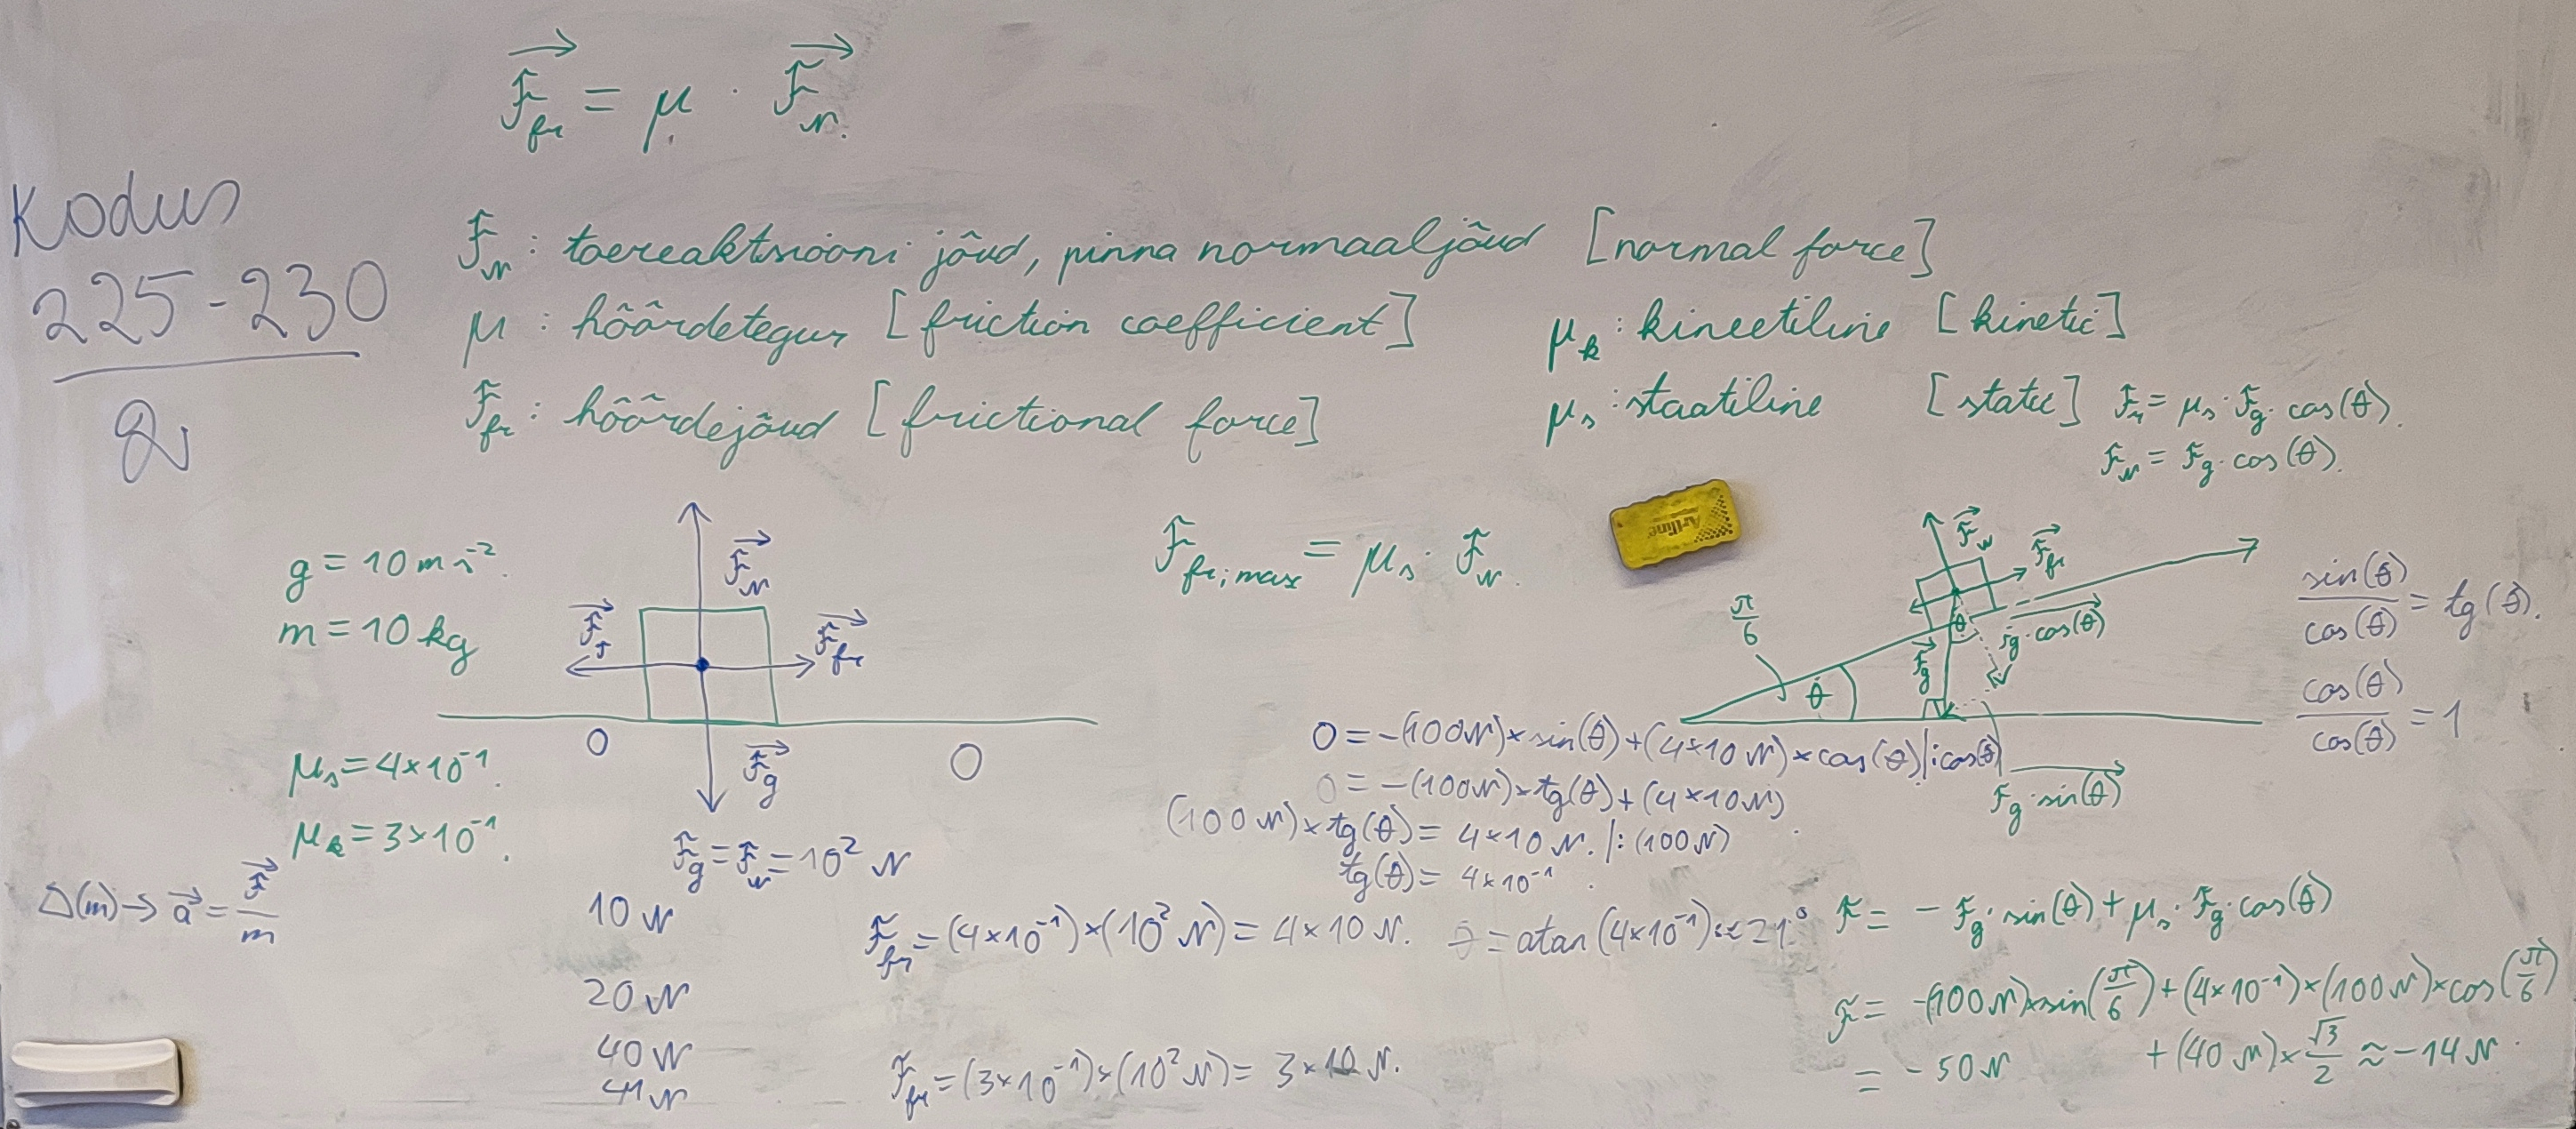 F⃗_fr = μ · F⃗_N.
Kodus
225-230
F_N : toereaktsiooni jõud, pinna normaaljõud [normal force]
μ : hõõrdetegur [friction coefficient]
μ_k : kineetiline [kinetic]
F_fr : hõõrdejõud [frictional force]
μ_s : staatiline [static]
F_r = μ_s · F_g · cos(θ).
F_N = F_g · cos(θ).
g = 10 m s⁻².
m = 10 kg
μ_s = 4×10⁻¹.
μ_k = 3×10⁻¹.
F⃗_N
F⃗_fr
F⃗_g
0
0
F_g = F_N = 10² N
Δ(m) → a⃗ = F⃗/m
10 N
20 N
40 N
41 N
F_fr = (4×10⁻¹)×(10² N) = 4×10 N.
F_fr = (3×10⁻¹)×(10² N) = 3×10 N.
F_fr;max = μ_s · F_N.
Artline
F⃗_N
F⃗_fr
π/6
θ
θ
F⃗_g
F_g · cos(θ)
F_g · sin(θ)
sin(θ)/cos(θ) = tg(θ).
cos(θ)/cos(θ) = 1
0 = -(100N)×sin(θ)+(4×10 N)×cos(θ) |:cos(θ)
0 = -(100N)×tg(θ)+(4×10N)
(100N)×tg(θ) = 4×10 N. |:(100N)
tg(θ) = 4×10⁻¹.
θ = atan(4×10⁻¹) ≈ 21°
F = - F_g · sin(θ) + μ_s · F_g · cos(θ)
F = -(100N)×sin(π/6)+(4×10⁻¹)×(100N)×cos(π/6)
= -50N + (40 N)×√3/2 ≈ -14 N.